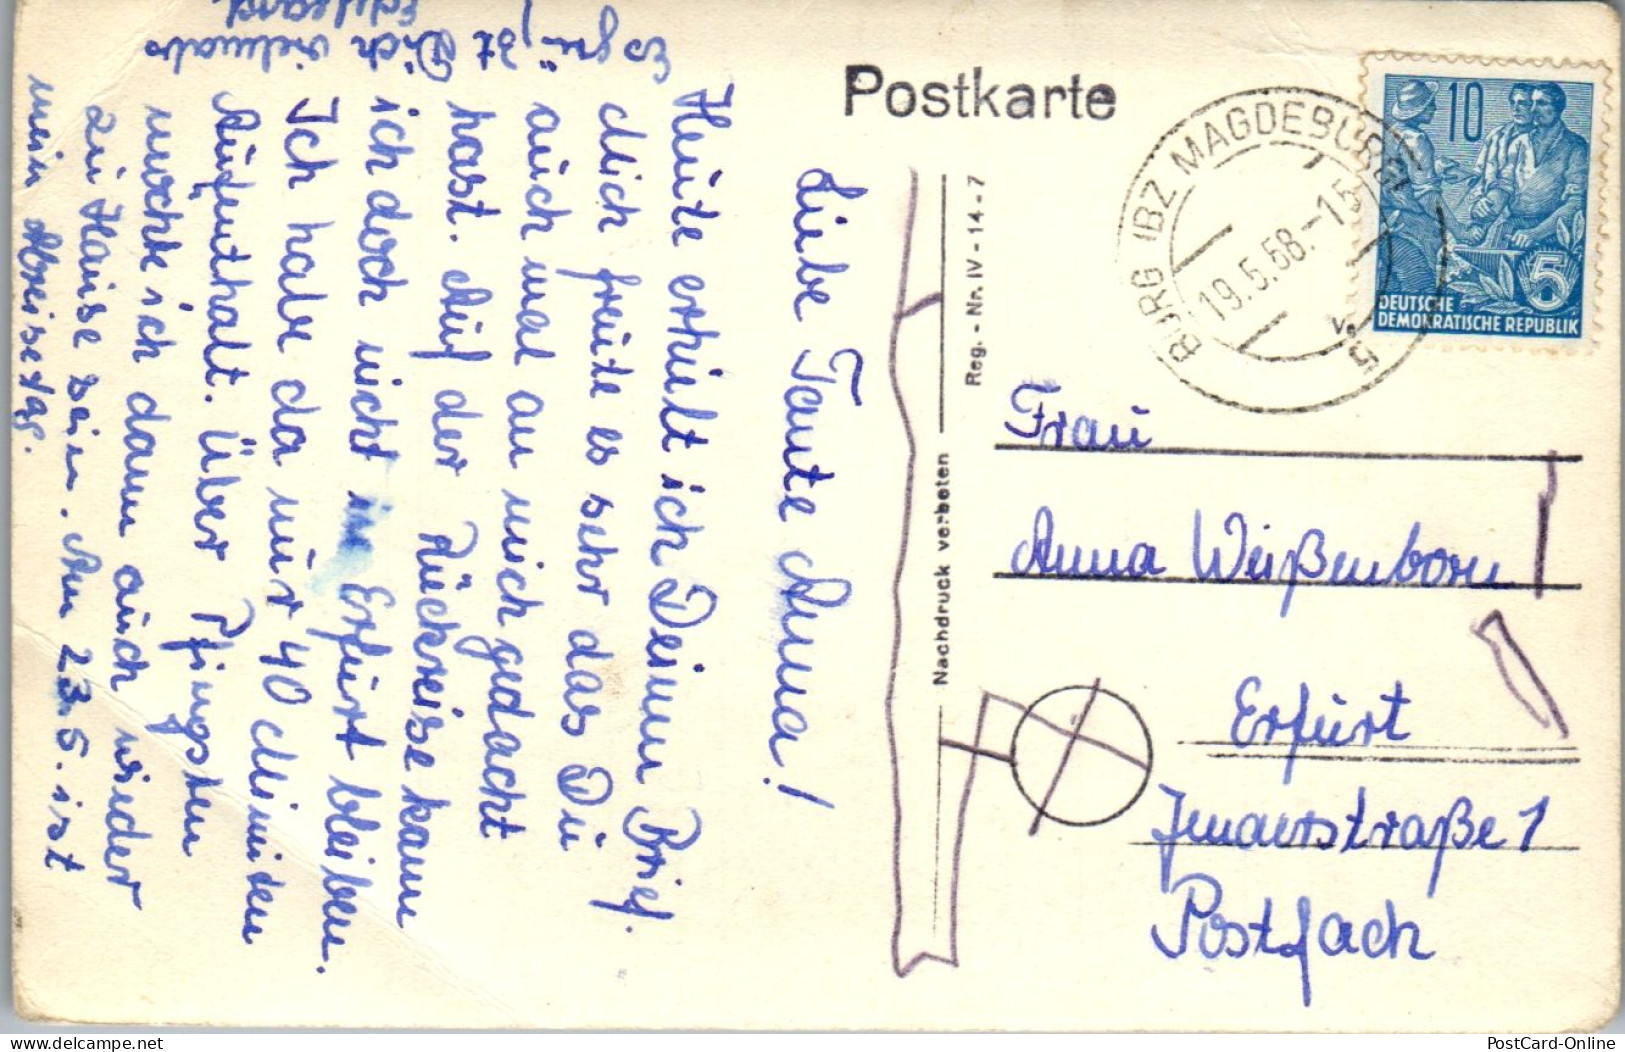 Postkarte
BURG (BZ MAGDEBURG)
19.5.58.-15
5
10
5
DEUTSCHE
DEMOKRATISCHE REPUBLIK
Reg. - Nr. IV - 14 - 7
Nachdruck verboten
Frau
Anna Weißenborn
Erfurt
Jenaerstraße 1
Postfach
Liebe Tante Anna!
Heute erhielt ich Deinen Brief.
dlich freute es sehr das Du
auch mal an mich gedacht
hast. Auf der Rückreise kann
ich doch nicht in Erfurt bleiben.
Ich habe da nur 40 Minuten
Aufenthalt. Über Pfingsten
möchte ich dann auch wieder
zu Hause sein. Am 23.5. ist
mein Abreisetag.
Es grüßt Dich vielmals